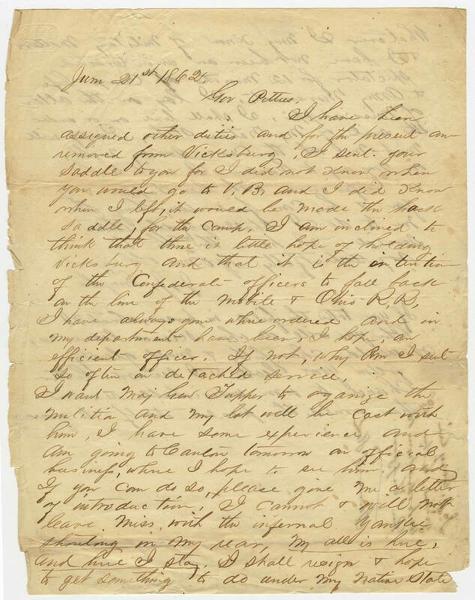 June 21st 1862
Gov Pettus,
I have been
assigned other duties and for the present am
removed from Vicksburg, I sent your
Saddle to you for I did not know when
you would go to V, B, and I did know
when I left, it would be made the pack
Saddle, for the camp, I am inclined to
think that there is little hope of holding
Vicksburg and that it is the intention
of the Confederate officers to fall back
on the line of the Mobile & Ohio R, R,
I have always gone where ordered and in
my department have been, I hope, an
efficient officer. If not, why am I sent
so often on detached service.
I want Maj Genl Tupper to organize the
Militia and my lot will be cast with
him, I have some experience, and
am going to Canton tomorrow on official
business, where I hope to see him, and
If you can do so, please give me a letter
of introduction, I cannot & will not
leave Miss, with the infernal Yankee
shouting on my rear, My all is here,
and here I stay, I shall resign & hope
to get something to do under my Native State